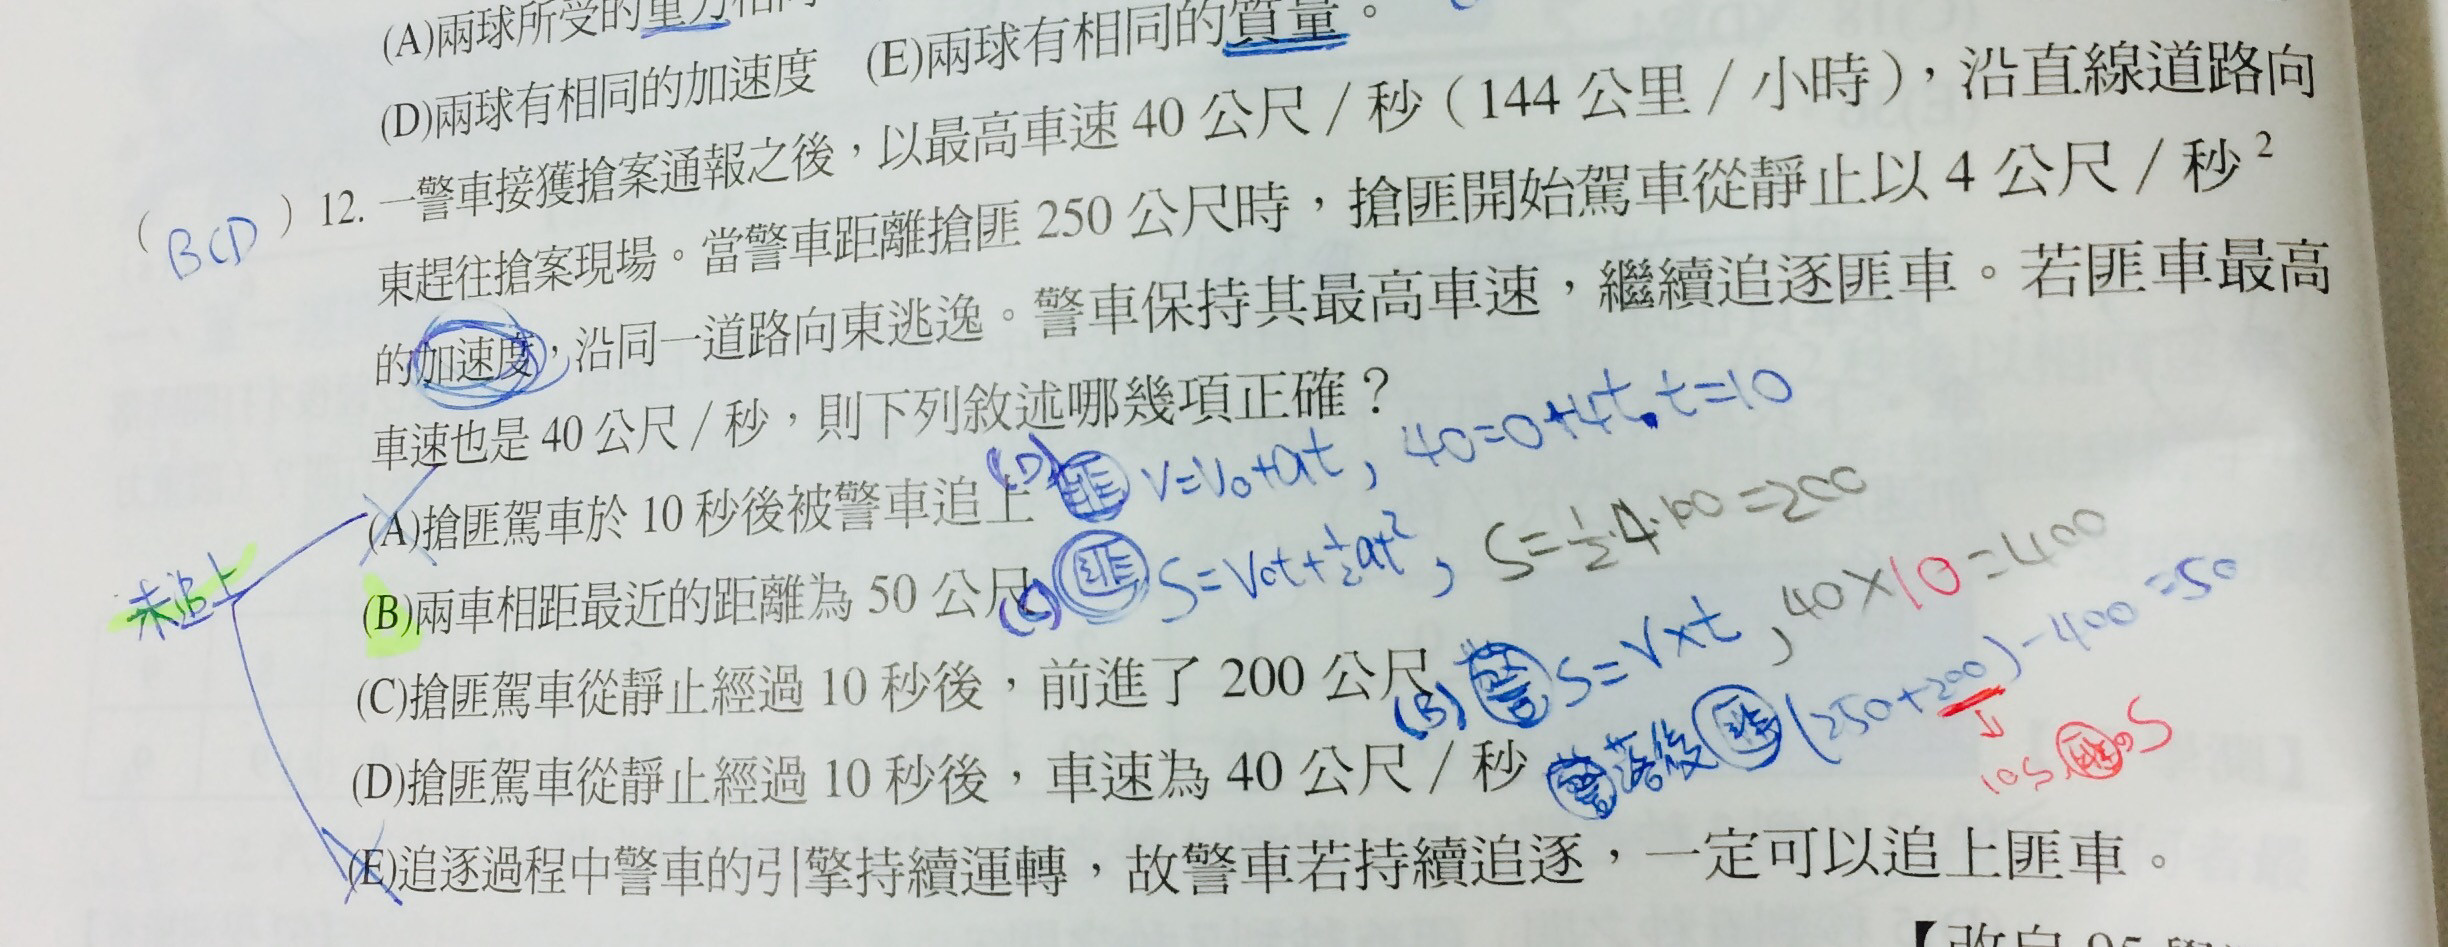 (A)兩球所受的重力相同
(D)兩球有相同的加速度 (E)兩球有相同的質量。
( BCD ) 12. 一警車接獲搶案通報之後，以最高車速 40 公尺／秒（144 公里／小時），沿直線道路向
東趕往搶案現場。當警車距離搶匪 250 公尺時，搶匪開始駕車從靜止以 4 公尺／秒²
的加速度，沿同一道路向東逃逸。警車保持其最高車速，繼續追逐匪車。若匪車最高
車速也是 40 公尺／秒，則下列敘述哪幾項正確？
(D) 匪 V=V₀+at, 40=0+4t, t=10
(A)搶匪駕車於 10 秒後被警車追上
(C) 匪 S=V₀t+½at², S=½·4·100=200
未追上
(B)兩車相距最近的距離為 50 公尺
(B) 警 S=V×t, 40×10=400
(C)搶匪駕車從靜止經過 10 秒後，前進了 200 公尺
警落後匪 (250+200)-400=50
10s 匪的S
(D)搶匪駕車從靜止經過 10 秒後，車速為 40 公尺／秒
(E)追逐過程中警車的引擎持續運轉，故警車若持續追逐，一定可以追上匪車。
【改自 95